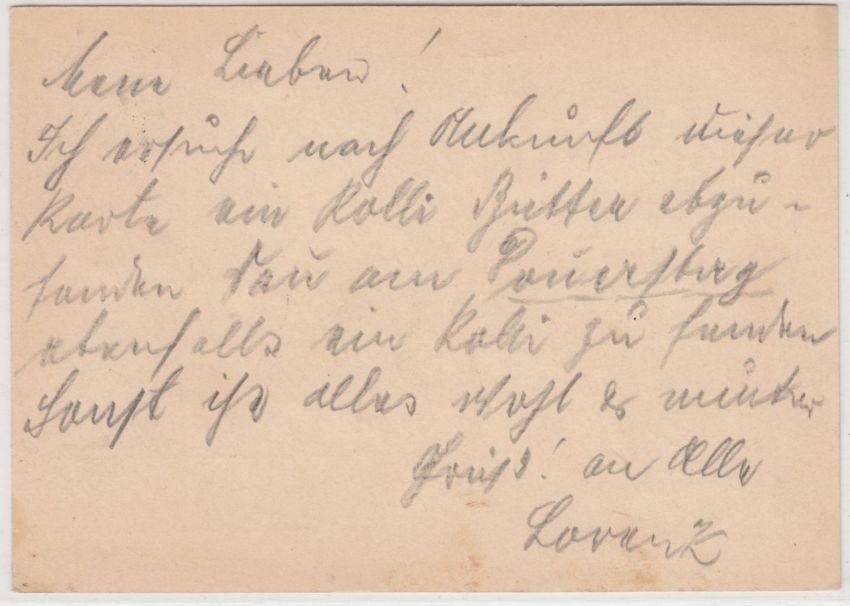 Meine Lieben!
Ich ersuche nach Ankunft dieser
Karte ein Kolli Butter abzu-
senden dan am Donerstag
ebenfalls ein Kolli zu senden
Sonst ist alles wohl & munter
Gruß! an Alle
Lorenz